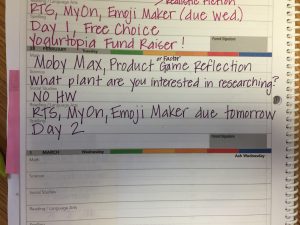 Realistic Fiction
RTS, MyOn, Emoji Maker (due Wed.)
Day 1, Free Choice
Yogurtopia Fund Raiser!
Parent Signature
or Factor
Moby Max, Product Game Reflection
What plant are you interested in researching?
NO HW
RTS, MyOn, Emoji Maker due tomorrow
Day 2
Parent Signature
1 MARCH Wednesday Ash Wednesday
Math
Science
Social Studies
Reading / Language Arts